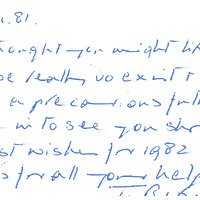 . 81.
thought you might lik
be leaving
a precarious fut
in to see you sho
st wishes for 1982
s for all your help